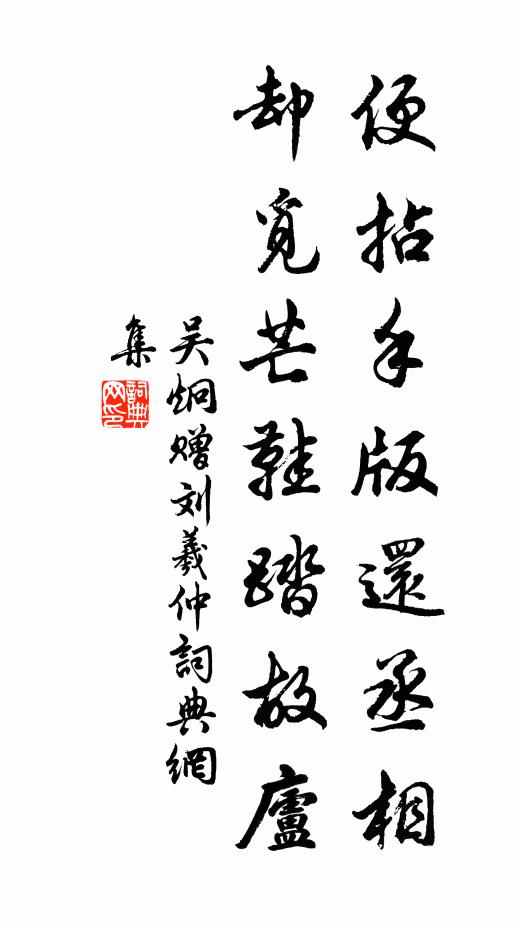 便拈手版還丞相
却覓芒鞋踏故廬
吴炯赠刘羲仲詞典網
集
詞典
网印